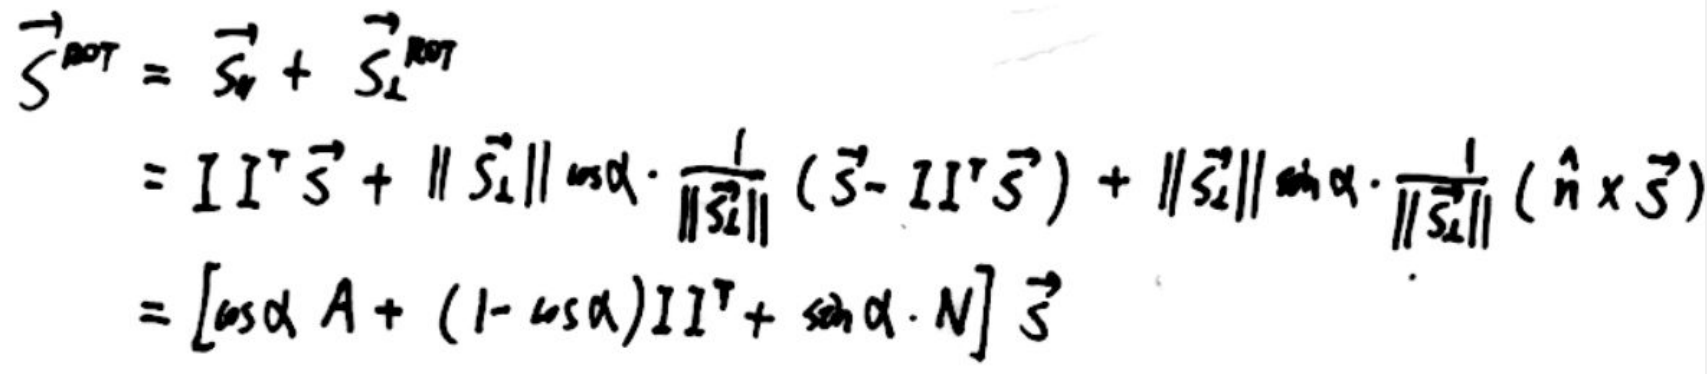 $\vec{S}^{ROT} = \vec{S}_{\parallel} + \vec{S}_{\perp}^{ROT}$
$= I I^{T} \vec{S} + \| \vec{S}_{\perp} \| \cos\alpha \cdot \frac{1}{\| \vec{S}_{\perp} \|} ( \vec{S} - I I^{T} \vec{S} ) + \| \vec{S}_{\perp} \| \sin\alpha \cdot \frac{1}{\| \vec{S}_{\perp} \|} ( \hat{n} \times \vec{S} )$
$= [ \cos\alpha \, A + ( 1 - \cos\alpha ) I I^{T} + \sin\alpha \cdot N ] \, \vec{S}$